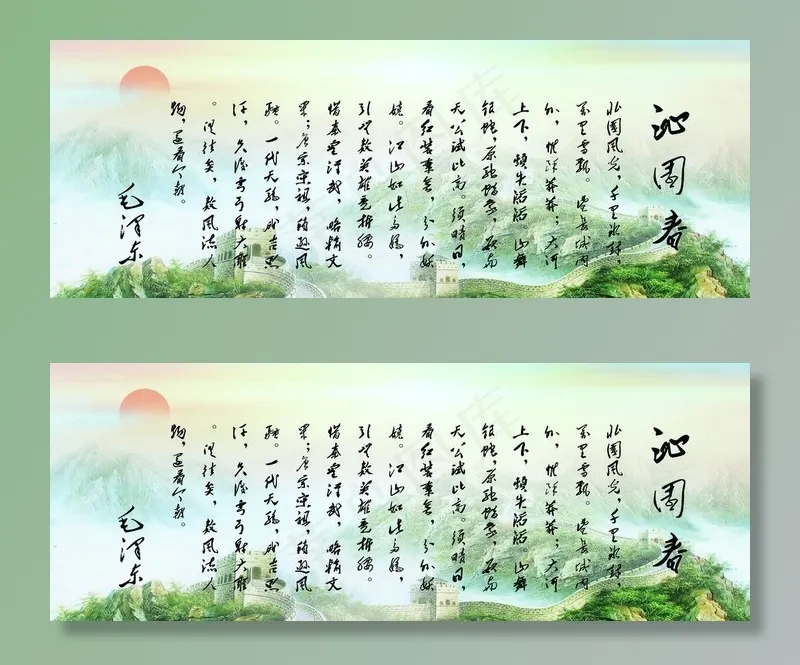 沁园春
北国风光，千里冰封，
万里雪飘。望长城内
外，惟馀莽莽；大河
上下，顿失滔滔。山舞
银蛇，原驰蜡象，欲与
天公试比高。须晴日，
看红装素裹，分外妖
娆。江山如此多娇，
引无数英雄竞折腰。
惜秦皇汉武，略输文
采；唐宗宋祖，稍逊风
骚。一代天骄，成吉思
汗，只识弯弓射大雕
。俱往矣，数风流人
物，还看今朝。
毛泽东
沁园春
北国风光，千里冰封，
万里雪飘。望长城内
外，惟馀莽莽；大河
上下，顿失滔滔。山舞
银蛇，原驰蜡象，欲与
天公试比高。须晴日，
看红装素裹，分外妖
娆。江山如此多娇，
引无数英雄竞折腰。
惜秦皇汉武，略输文
采；唐宗宋祖，稍逊风
骚。一代天骄，成吉思
汗，只识弯弓射大雕
。俱往矣，数风流人
物，还看今朝。
毛泽东